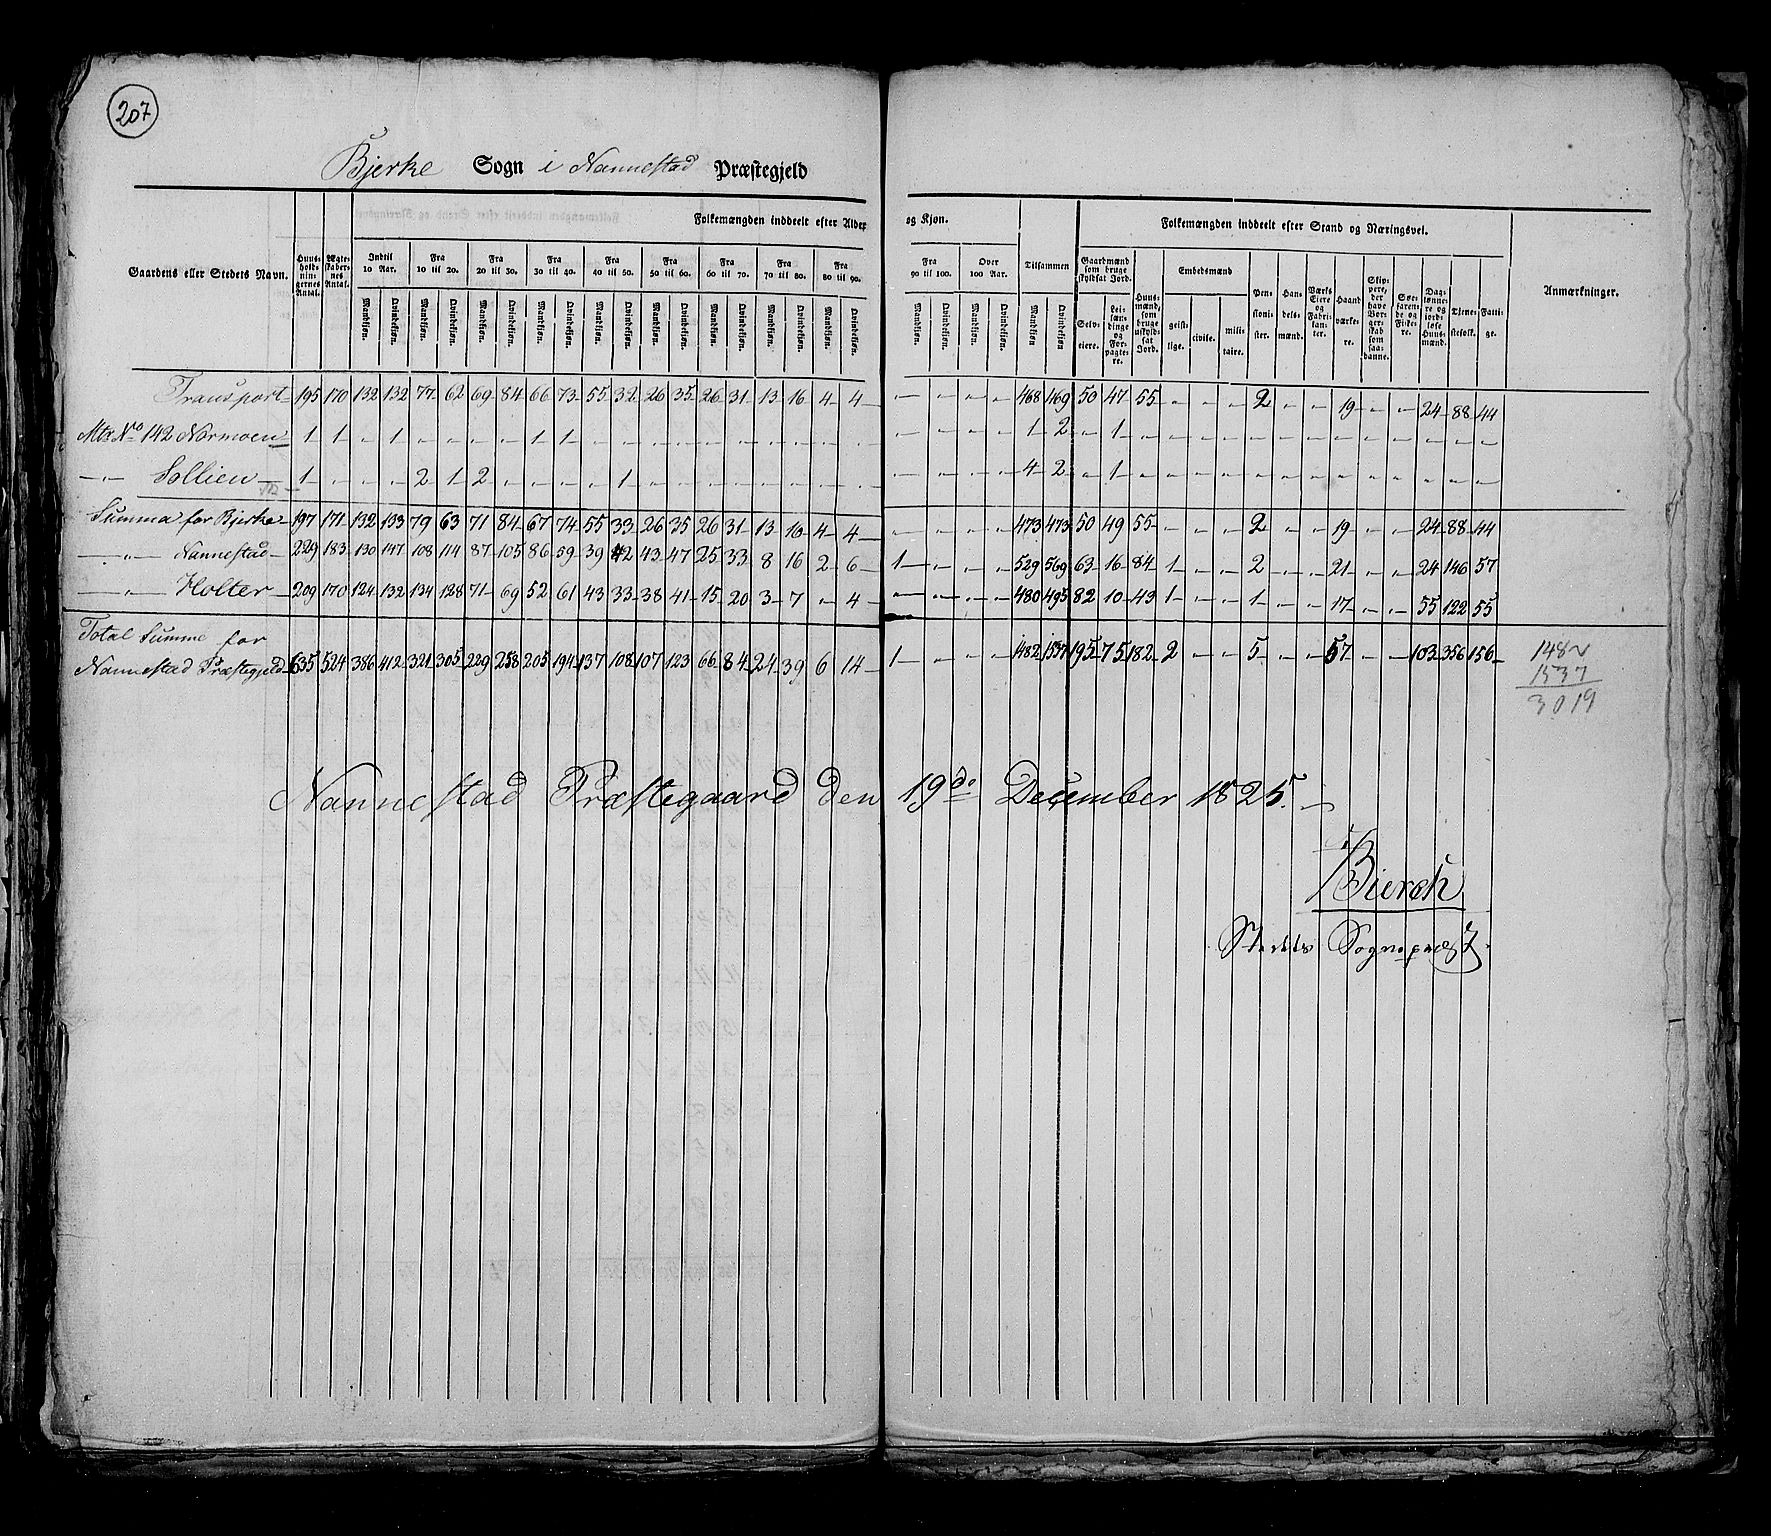 207
Bjerke Sogn i Nannestad Præstegjeld
Folkemængden inddeelt efter Alder og Kjøn. Folkemængden inddeelt efter Stand og Næringsvei.
Gaardens eller Stedets Navn. Huusholdningernes Antal. Ægteskabernes Antal. Indtil 10 Aar. Fra 10 til 20. Fra 20 til 30. Fra 30 til 40. Fra 40 til 50. Fra 50 til 60. Fra 60 til 70. Fra 70 til 80. Fra 80 til 90. Fra 90 til 100. Over 100 Aar. Tilsammen Gaardmænd som bruge skyldsat Jord. Huusmænd, som bruge uskyldsat Jord. Embedsmænd Pensionister. Handelsmænd. Værks-Eiere og Fabrikanter. Haandværkere. Skippere, der have Borgerskab som saadanne. Søefarende og Fiskere. Dagslønnere og jordløse Huusmænd. Tjenestefolk. Fattige. Anmærkninger.
Mandkjøn. Qvindekjøn. Mandkjøn. Qvindekjøn. Mandkjøn. Qvindekjøn. Mandkjøn. Qvindekjøn. Mandkjøn. Qvindekjøn. Mandkjøn. Qvindekjøn. Mandkjøn. Qvindekjøn. Mandkjøn. Qvindekjøn. Mandkjøn. Qvindekjøn. Mandkjøn. Qvindekjøn. Mandkjøn. Qvindekjøn. Mandkjøn. Qvindekjøn Selveiere. Leilændinge og Forpagtere. geistlige. civile. militaire.
Transport 195 170 132 132 77 62 69 84 66 73 55 32 26 35 26 31 13 16 4 4 — — — — 468 469 50 47 55 — — — 2 — — 19 — — 24 88 44
Mtr. No 142 Normoen 1 1 — 1 — — — — 1 1 — — — — — — — — — — — — — — 1 2 — 1 — — — — — — — — — — — — —
— Sollien 1 — — — 2 1 2 — — — — 1 — — — — — — — — — — — — 4 2 — 1 — — — — — — — — — — — — —
Summa for Bjerke 197 171 132 133 79 63 71 84 67 74 55 33 26 35 26 31 13 16 4 4 — — — — 473 473 50 49 55 — — — 2 — — 19 — — 24 88 44
— Nannestad 229 183 130 147 108 114 87 105 86 59 39 42 43 47 25 33 8 16 2 6 1 — — — 529 569 63 16 84 1 — — 2 — — 21 — — 24 146 57
— Holter 209 170 124 132 134 128 71 69 52 61 43 33 38 41 15 20 3 7 — 4 — — — — 480 495 82 10 43 1 — — 1 — — 17 — — 55 122 55
Total Summe for
Nannestad Præstegjeld 635 524 386 412 321 305 229 258 205 194 137 108 107 123 66 84 24 39 6 14 1 — — — 1482 1537 195 75 182 2 — — 5 — — 57 — — 103 356 156
1482
1537
3019
Nannestad Præstegaard den 19de December 1825.
Bierch
Stedets Sognepræst